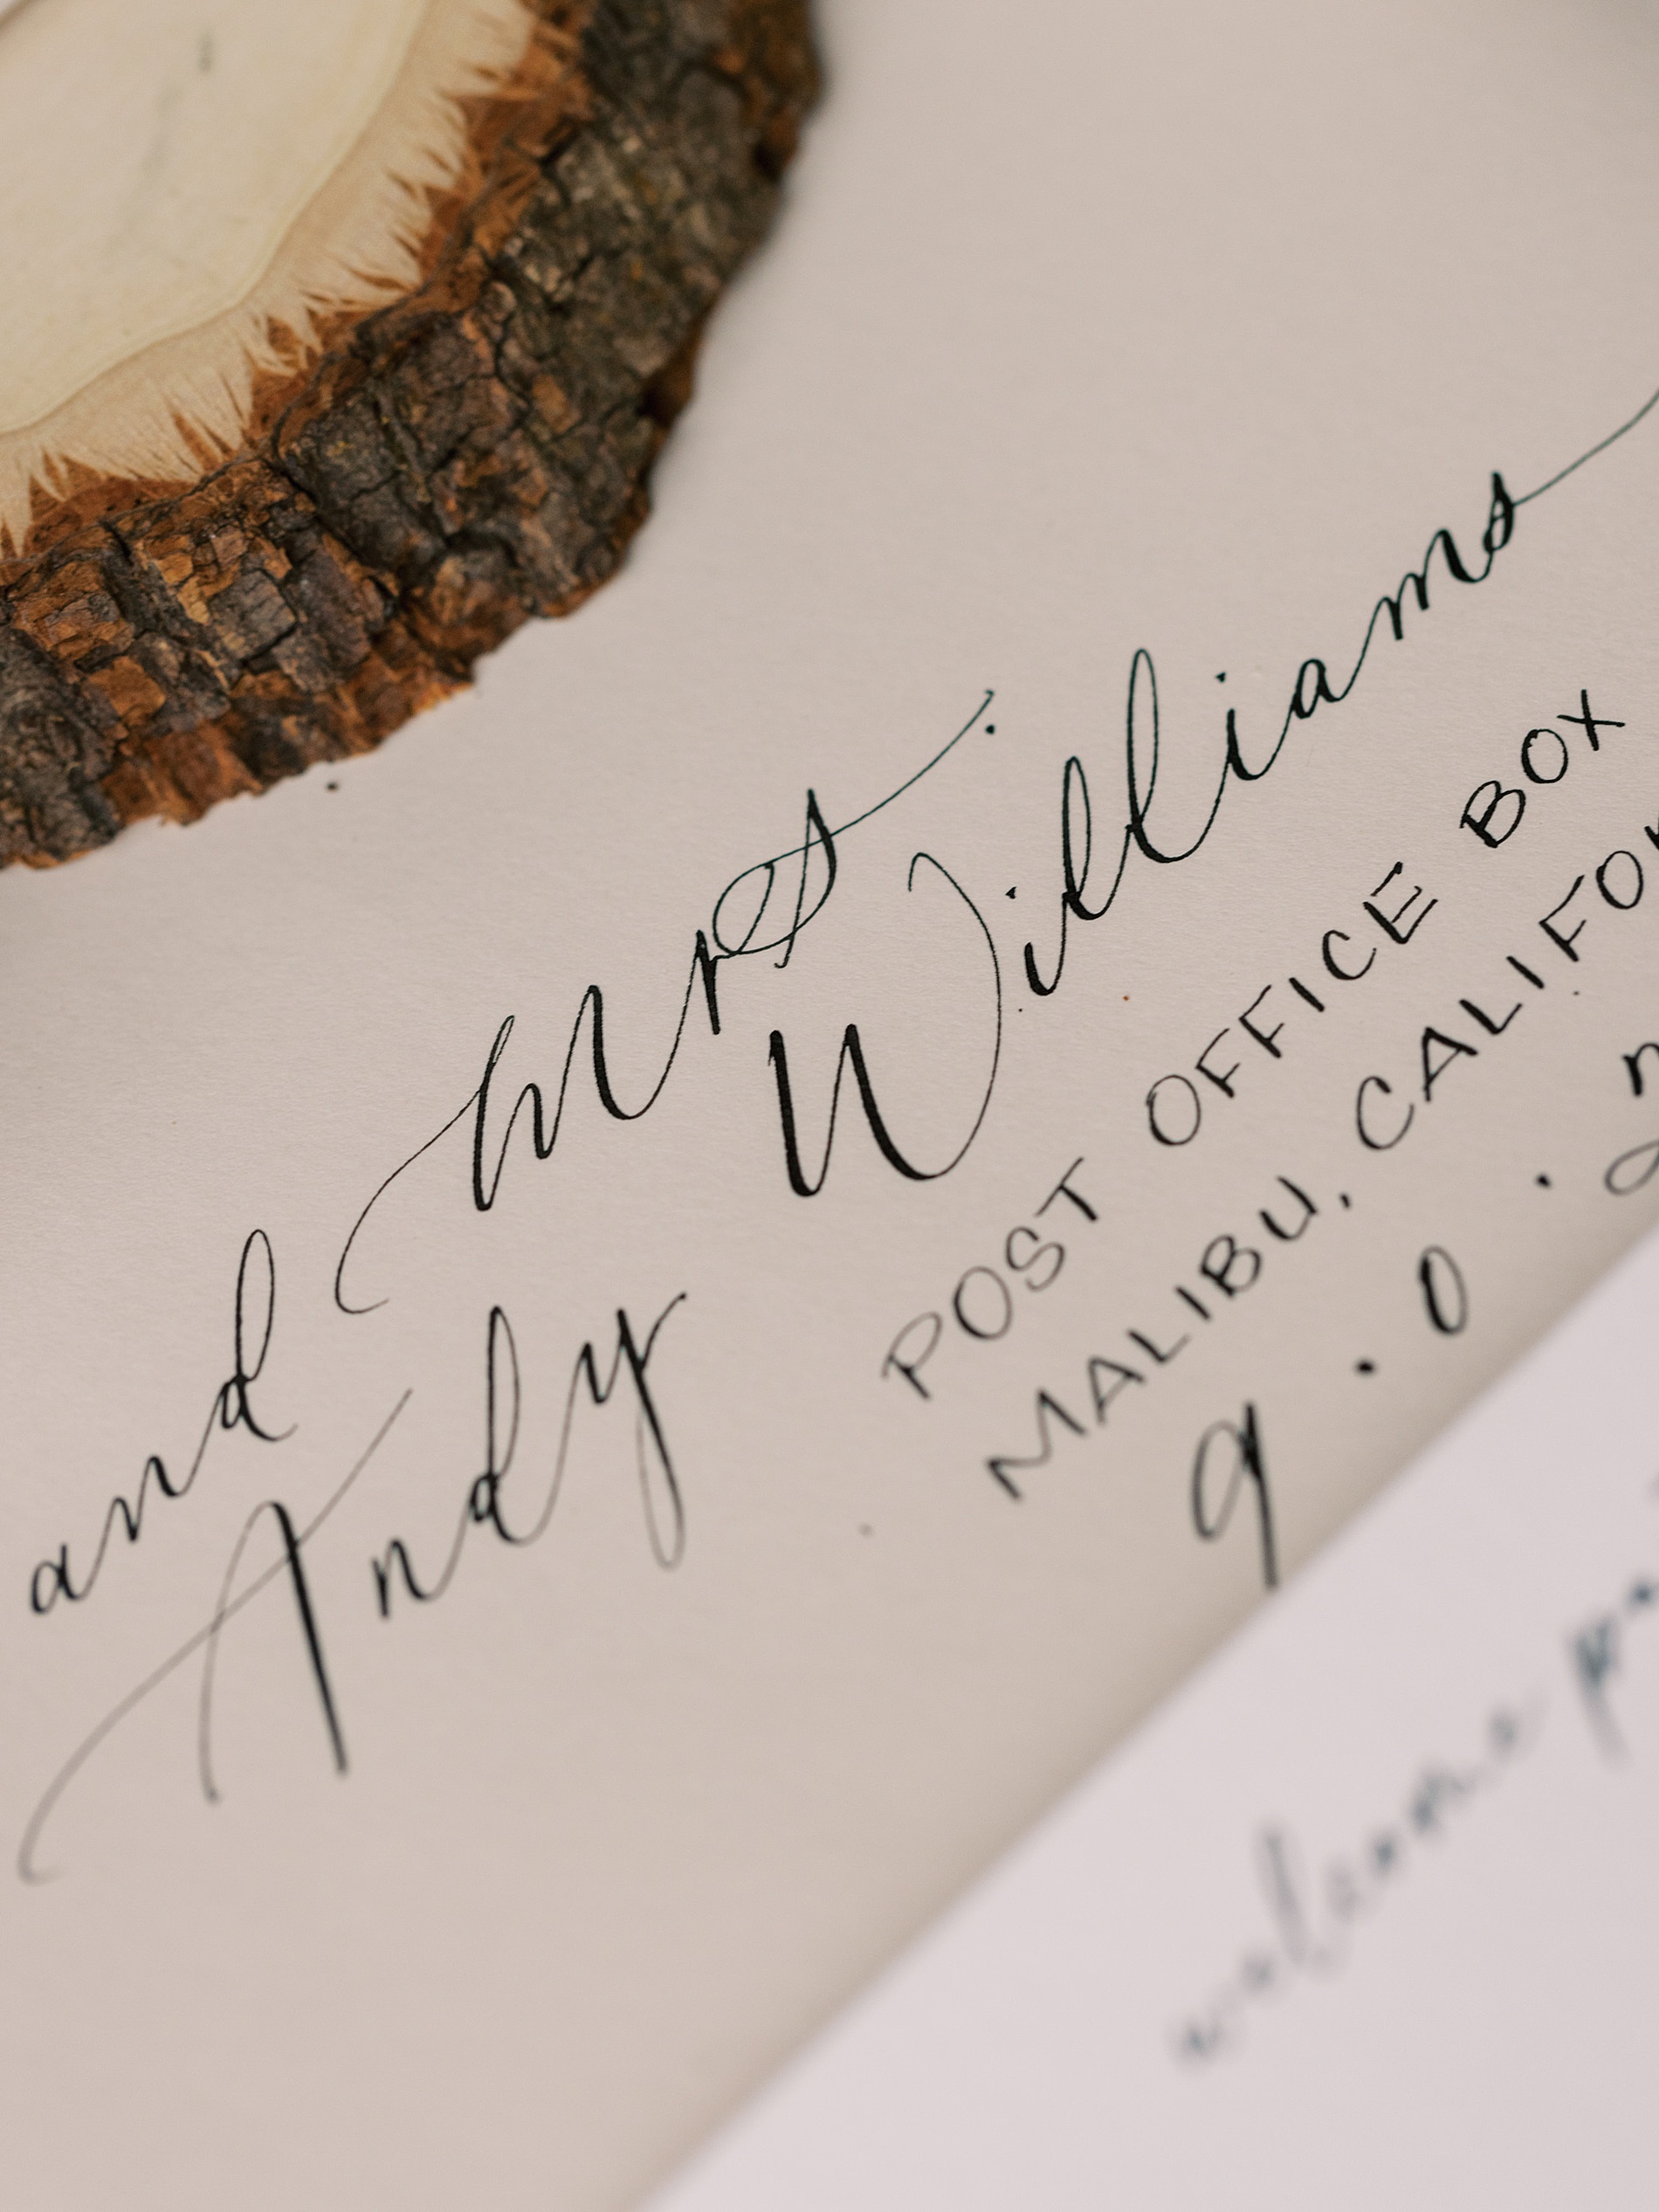 and Mrs.
Andy Williams
POST OFFICE BOX
MALIBU, CALIFOR
9 . 0 .
welcome